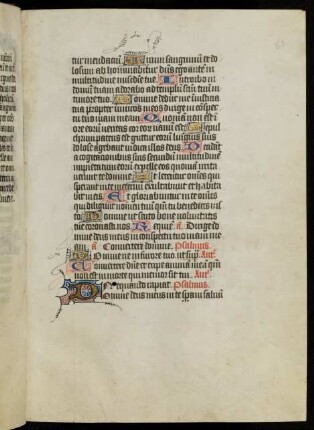 tur mendatium Virum sanguinum et do
losum abhominabitur dñs ego autē in
multitudine misericordie tue Introibo in
domum tuam adorabo ad templū sctm tuū in
timore tuo Domine deduc me in iusticia
tua propter inimicos meos dirige in conspec
tu tuo uiam meam Quoniā non est ī
ore eorū ueritas cor eorū uanū est Sepul
chrum patens est guttur eorū linguis suis
dolose agebant iudica illos deus Decidāt
a cogitationibus suis secundū multitudinē
impietatum eorū expelle eos quoniā irrita
uerunt te domine Et letentur omnes qui
sperant in te in eternū exultabunt et habita
bis in eis Et gloriabuntur in te omēs
qui diligunt nomen tuū qm̄ tu benedices ius
to Domine ut scuto bone uoluntatis
tue coronasti nos Requiē a Dirige do
mine deus meus in conspectu tuo uiam me
am a Conuertere domine Psalmus
Domine ne in furore tuo ut sup̄ Añt
Conuertere dñe et eripe animā meā qm̄
non est in morte qui memor sit tui Añt
Nequando rapiat Psalmus
Domine deus meus in te speraui saluū